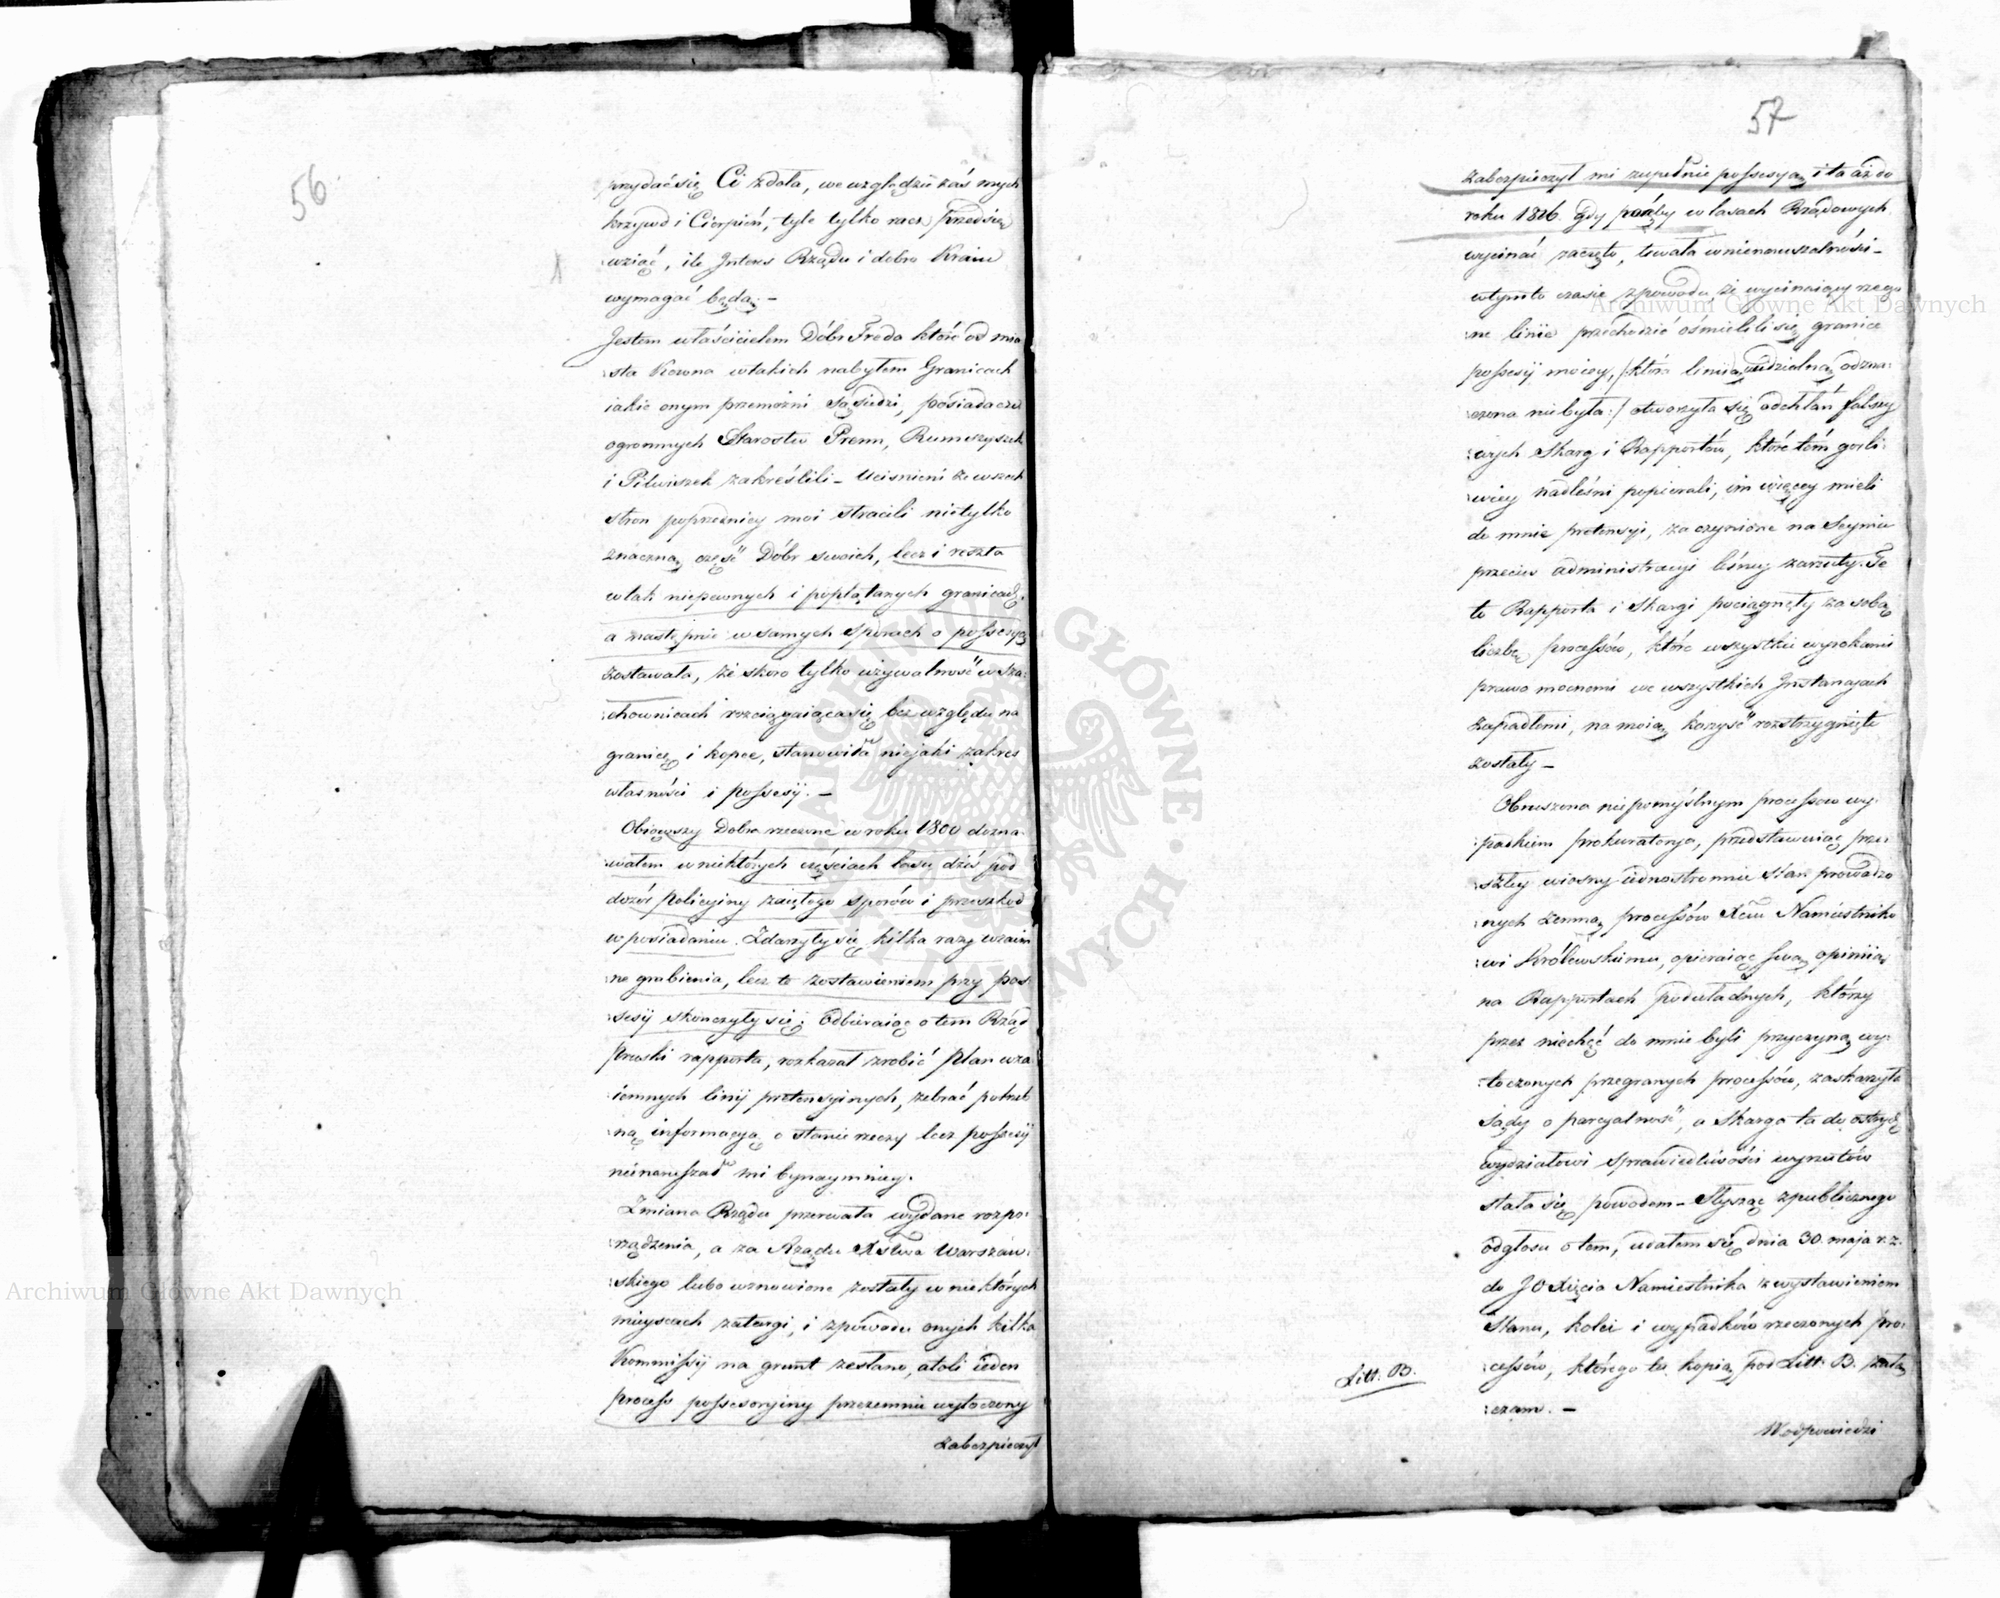 56
przydać się Ci zdoła, we względzie zaś mych
krzywd i Cierpień, tyle tylko racz przedsię
wziąć, ile Interes Rządu i dobro Kraiu
wymagać będą. –
Jestem właścicielem Dóbr Freda które od mia
:sta Kowna w takich nabyłem Granicach
iakie onym przemożni sąsiedzi, posiadacze
ogromnych Starostw Prenn, Rumszyszek
i Pilwiszek zakreślili – Uciśnieni ze wszech
stron poprzednicy moi stracili nietylko
znaczną część Dóbr swoich, lecz i reszta
w tak niepewnych i poplątanych granicach,
a następnie w samych sporach o possessyą
zostawała, że skoro tylko używalność w sza:
:chownicach rozciągaiąca się bez względu na
granicę i kopce, stanowiła nieiaki zakres
własności i possesyi. –
Obiąwszy Dobra rzeczone w roku 1800 dozna:
:wałem w niektórych częściach lasu dziś pod
dozór Policyiny zaiętego sporów i przeszkód
w posiadaniu. Zdarzyły się kilka razy wzaiem
:ne grabienia, lecz te zostawieniem przy pos:
:sesyi skończyły się; Odbieraiąc o tem Rząd
Pruski rapporta, rozkazał zrobić Plan wza
:iemnych linij pretensyinych, zebrać potrzeb
:ną informacyą o stanie rzeczy lecz possesyi
nienaruszał mi bynaymniey.
Zmiana Rządu przerwała wydane rozpo:
:rządzenia, a za Rządu Xstwa Warszaw:
:skiego lubo wznowione zostały w niektórych
mieyscach zatargi, i z powodu onych kilka
Kommissyi na grunt zesłano, atoli ieden
process possessoryiny przezemnie wytoczony
zabezpieczył
57
zabezpieczył mi zupełnie possesyą i ta aż do
roku 1816. gdy poręby w lasach Rządowych
wycinać zaczęto, trwała w nienaruszalności –
w tymto czasie z powodu, że wycinaiący rzego
:ne linie przechodzić ośmielili się granice
possesyi moiey, /:która linią udzielną odzna:
:czona nie była:/ otworzyła się odchłań fałszy
:wych Skarg i Rapportów, które tém gorli:
:wiey Nadleśni popierali, im więcey mieli
do mnie pretensyi, za czynione na Seymie
przeciw administracyi leśney zarzuty. Te
to Rapporta i Skargi pociągnęły za sobą
liczbę processów, które wszystkie wyrokami
prawomocnemi we wszystkich Instancyach
zapadłemi, na moią korzyść rozstrzygnięte
zostały –
Obruszona niepomyślnym processów wy:
:padkiem prokuratorya, przedstawiaiąc prze:
:szłey wiosny iednostronnie stan prowadzo
:nych ze mną processów Xciu Namiestniko
:wi Królewskiemu, opieraiąc swą opiniią
na Rapportach podwładnych, którzy
przez niechęć do mnie byli przyczyną wy:
:toczonych przegranych processów, zaskarżyła
Sądy o parcyalność, a Skarga ta do ostrych
wydziałowi sprawiedliwości wyrzutów
stała się powodem – Słysząc z publicznego
odgłosu o tem, udałem się dnia 30. maja r. z.
do JO Xięcia Namiestnika z wystawieniem
Stanu, kolei i wypadków rzeczonych pro:
:cessów, którego tu kopią pod Litt: B. załą
:czam. –
Litt: B.
W odpowiedzi
Archiwum Główne Akt Dawnych
Archiwum Główne Akt Dawnych
ARCHIWUM GŁÓWNE AKT DAWNYCH